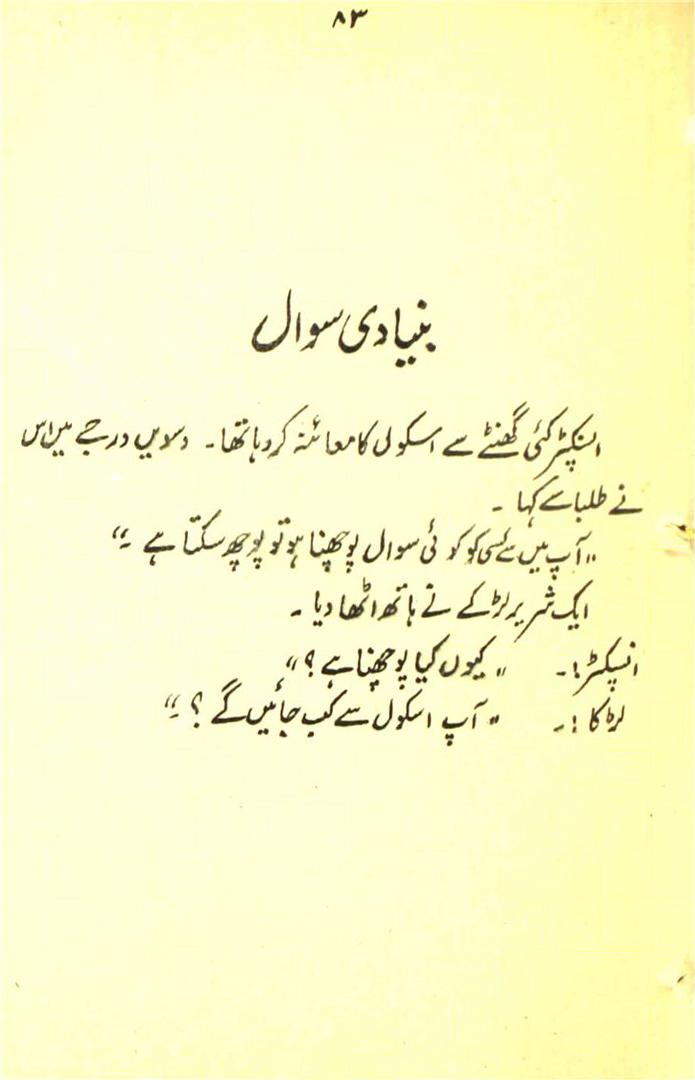 ۸۳
بنیادی سوال
انسپکٹر کئی گھنٹے سے اسکول کا معائنہ کر رہا تھا۔ دسویں درجے میں اس
نے طلبا سے کہا۔
"آپ میں سے کسی کو کوئی سوال پوچھنا ہو تو پوچھ سکتا ہے۔"
ایک شریر لڑکے نے ہاتھ اٹھا دیا۔
انسپکٹر:۔ "کیوں کیا پوچھنا ہے؟"
لڑکا:۔ "آپ اسکول سے کب جائیں گے؟۔"